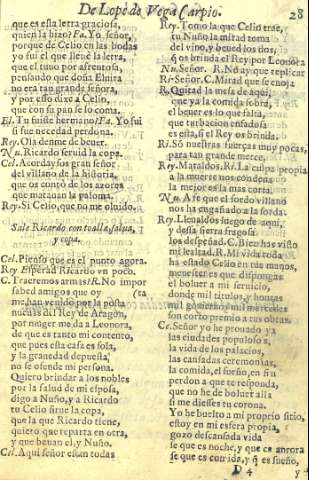 De Lope de Vega Carpio.
28
que es esta letra graciosa,
quien la hizo? Fa. Yo señor,
porque de Celio en las bodas
yo fui el que lleuè la letra,
que el tuuo por afrentosa,
pensando que doña Elnira
no era tan grande señora,
y por esso dixe a Celio,
que con su pan se lo coma.
El. Tu fuiste hermano? Fa. Yo fui
si fue necedad perdona.
Rey. Ola denme de beuer.
Nu. Ricardo seruid la copa.
Cel. Acordays os gran señor
del villano de la historia,
que os contò de los azores
que matauan la paloma.
Rey. Si Celio, que no me oluido.
Sale Ricardo con toalla, salua,
y copa.
Cel. Pienso que es el punto agora.
Rey Esperad Ricardo vn poco.
C. Traeremos armas? R. No impor
sabed amigos que oy (ta
me han venido por la posta
nueuas del Rey de Aragon,
por muger me da a Leonora,
de que es tanto mi contento,
que pues esta casa es sola,
y la grauedad depuesta,
no se ofende mi persona.
Quiero brindar a los nobles
por la salud de mi esposa,
digo a Nuño, y a Ricardo
tu Celio sirue la copa,
que la que Ricardo tiene,
quiero que reparta en otra,
y que beuan el, y Nuño.
Cel. Aqui señor estan todas
Rey. Toma la que Celio trae,
tu Nuño la mitad toma
del vino, y beued los dos,
q̃ os brinda el Rey por Leonora
Nu. Señor. R. No ay que replicar
Ri. Señor. C. Mirad que se enoja
R. Quitad la mesa de aqui,
que ya la comida sobra,
el beuer es lo que falta,
que turbacion enfadosa
es esta, si el Rey os brinda.
Ri. Só nuestras fuerças muy pocas,
para tan grande merced,
Rey. Mataldos. Ri. La culpa propia
a la muerte nos condena,
la mejor es la mas corta.
Nu. A fè que el sordo villano
nos ha engañado a la sorda.
Rey. Lleualdos luego de aqui,
y de essa sierra fragosa
los despeñad. C. Bien has visto
mi lealtad. R. Mi vida toda
ha estado Celio en tus manos,
menester es que dispongas
el boluer a mi seruicio,
donde mil titulos, y honras
son corto premio a tus obras.
Ce. Señor yo he prouado ya
las ciudades populosas,
la vida de los palacios,
las cansadas ceremonias,
la comida, el sueño, en fin
perdon a que te responda,
que no he de boluer alla
si me diesses tu corona.
Yo he buelto a mi proprio sitio,
estoy en mi esfera propia,
gozo descansada vida
se que es noche, y que es aurora
se que es comida, y q̃ es sueño,
D 4
y